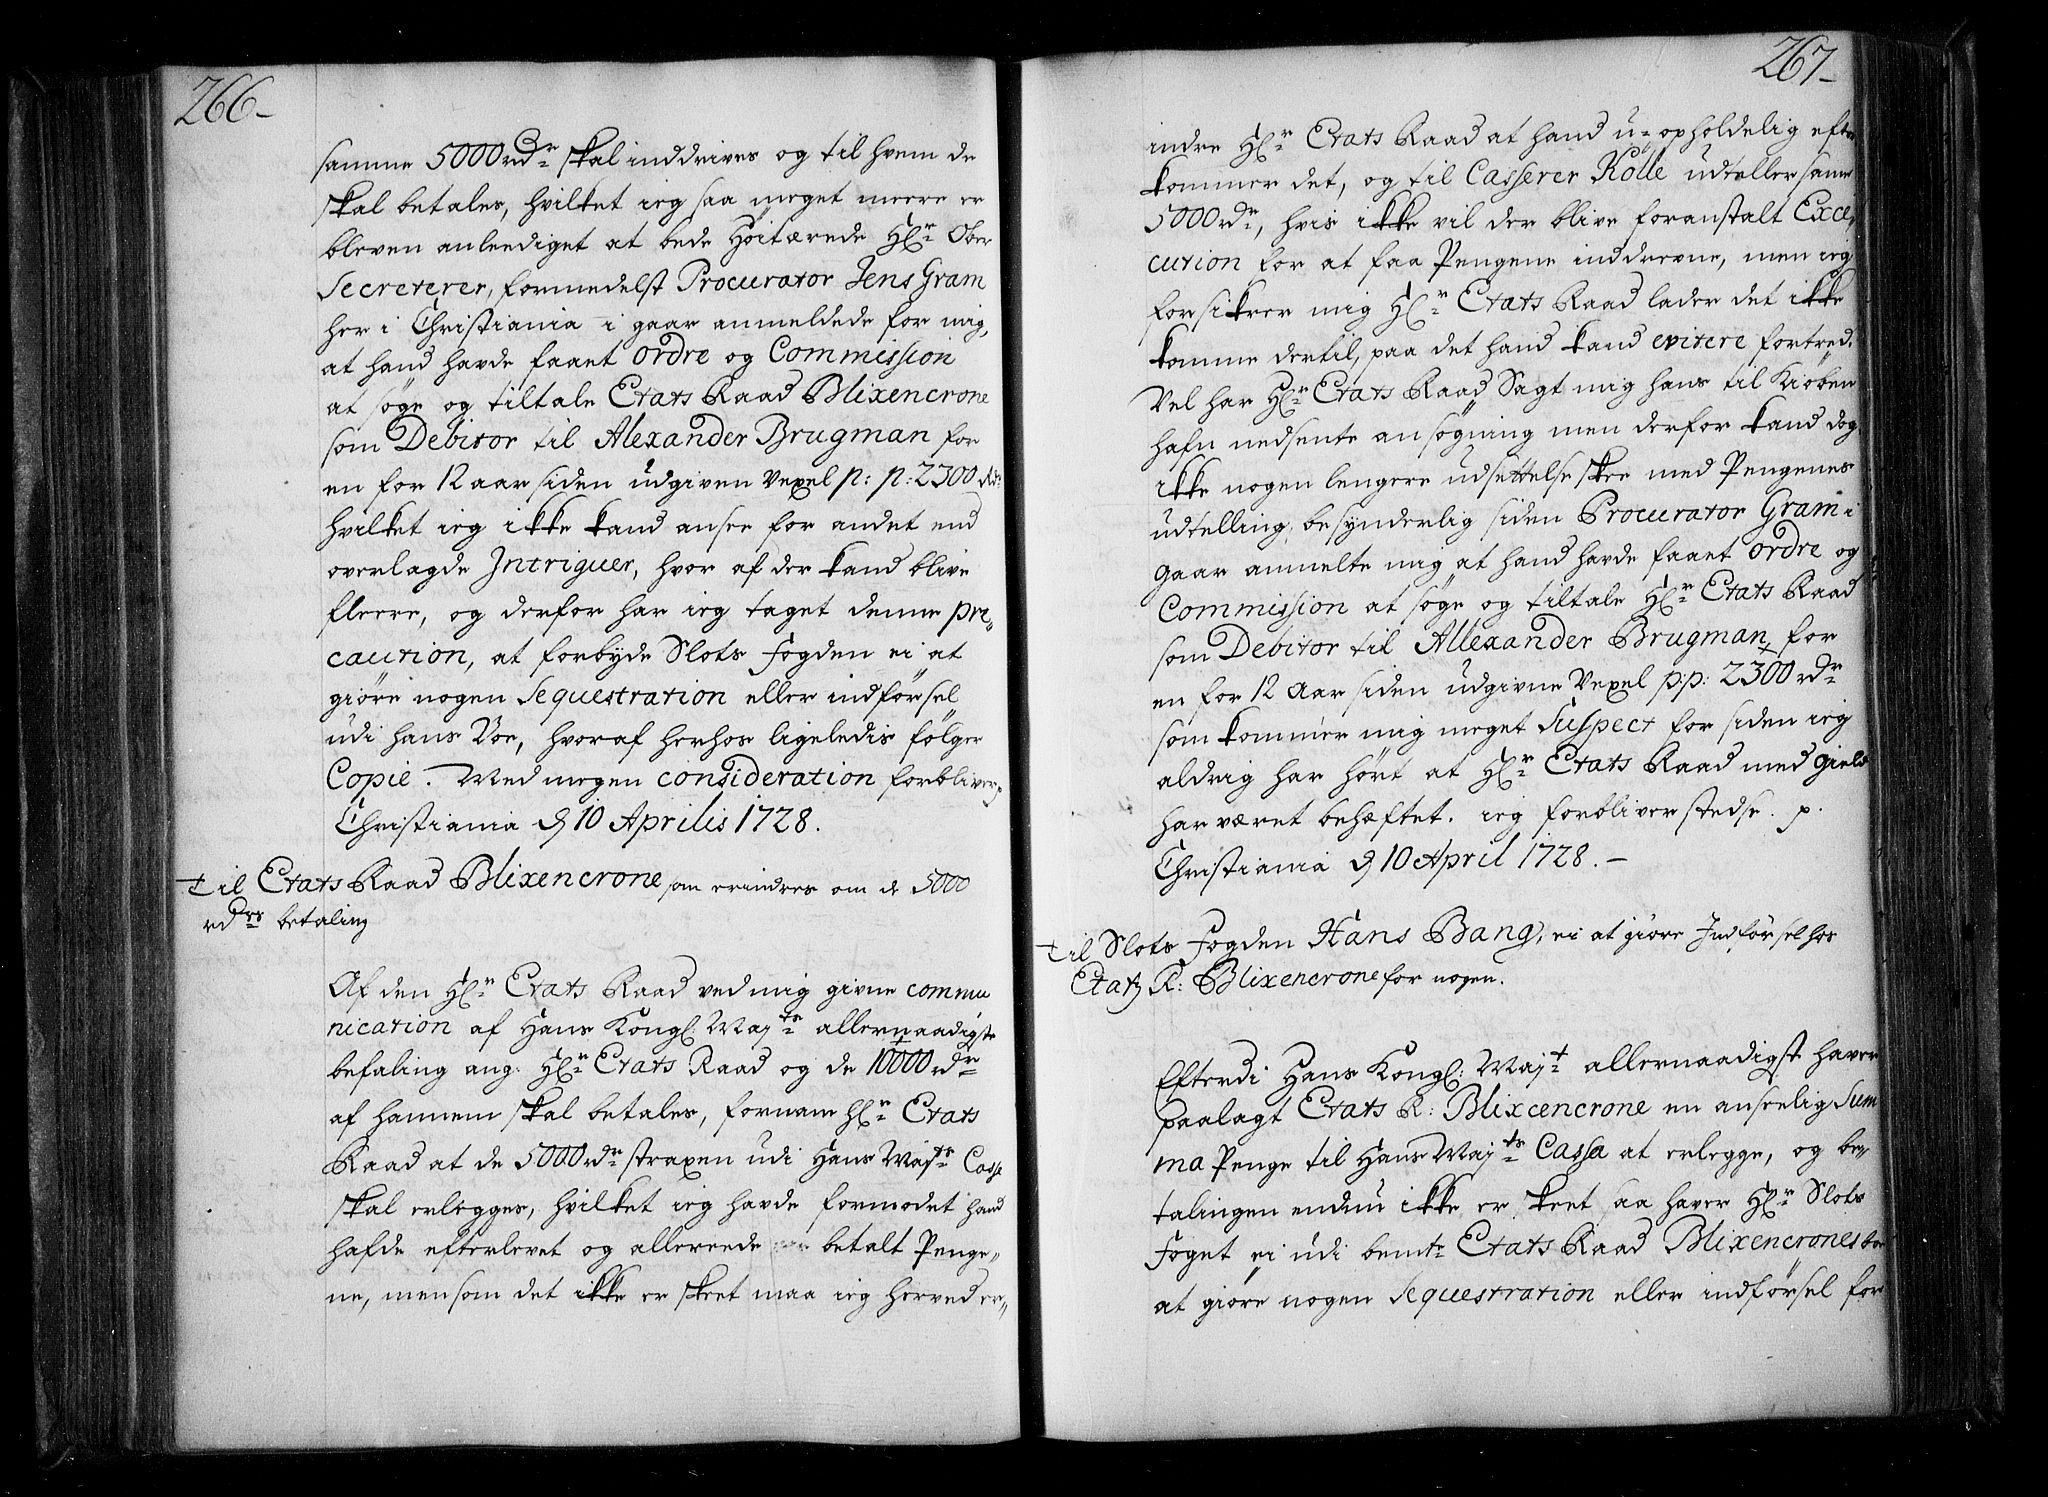 266-
samme 5000 rdr skal inddrives og til hvem de
skal betales, hvilket ieg saa meget meere er
bleven anleediget at bede Høitærede Hr Ober
Secreterer, formedelst Procurator Jens Gram
her i Christiania i gaar anmeldede for mig,
at hand havde faaet Ordre og Commission
at søge og tiltale Etats Raad Blixencrone
som Debitor til Alexander Brugman for
en for 12 aar siden udgiven Vexel p: p: 2300 rdr
hvilket ieg ikke kand ansee for andet end
overlagde Intriguer, hvor af der kand blive
fleere, og derfor har ieg taget denne pre„
caution, at forbyde Slots Fogden ei at
giøre nogen Sequestration eller indførsel
udi hans Boe, hvoraf herhos ligeledis følger
Copie. Med megen consideration forbliver p
Christiania d 10 Aprilis 1728.
til Etats Raad Blixencrone som erindres om de 5000
rdrs betaling
Af den Hr Etats Raad ved mig givne commu
nication af Hans Kongl: Mayts allernaadigste
befaling ang: Hr Etats Raad og de 10000 rdr
af hannem skal betales, fornam Hr Etats
Raad at de 5000 rdr straxen udi Hans Mayts Cassa
skal erlegges, hvilket ieg havde formodet hand
hafde efterlevet og allereede betalt Penge„
ne, men som det ikke er skeet maa ieg herved er„
267-
indre Hr Etats Raad at hand u-opholdelig efter
kommer det, og til Casserer Rølle udteller samme
5000 rdr, hvis ikke vil der blive foranstalt Exe„
cution for at faa Pengene inddrevne, men ieg
forsikrer mig Hr Etats Raad lader det ikke
komme dertil, paa det hand kand evitere fortred.
Vel har Hr Etats Raad Sagt mig hans til Kiøben
hafn nedsente ansøgning men derfor kand dog
ikke nogen lengere udsættelse skee med Pengenes
udtelling, besynderlig siden Procurator Gram i
Gaar anmelte mig at hand havde faaet Ordre og
Commission at søge og tiltale Hr Etats Raad
som Debitor til Allexander Brugman for
en for 12 Aar siden udgivne Vexel p:p: 2300 rdr
som kommer mig meget Suspect for siden ieg
aldrig har hørt at Hr Etats Raad med gield
har været behæftet. ieg forbliver stedse. p.
Christiania d 10 April 1728. -
til Slots Fogden Hans Bang, ei at giøre Indførsel hos
Etatz R: Blixencrone for nogen.
Efterdi Hans Kongl: Mayt allernaadigst haver
paalagt Etats R: Blixcencrone en anseelig Sum
ma Penge til Hans Mayts Cassa at erlegge, og be„
talingen endnu ikke er skeet saa haver Hr Slots
Foget ei udi bemte Etats Raad Blixencrones boe
at giøre nogen Sequestration eller indførsel for